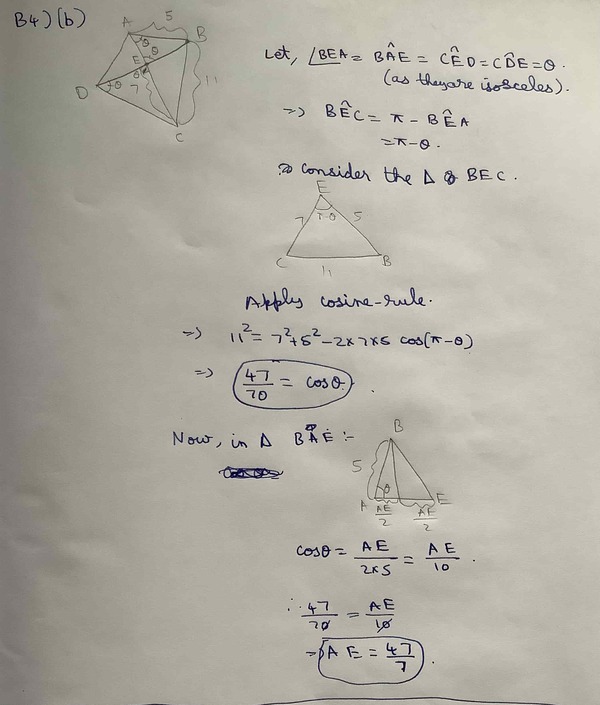 B4)(b)
A 5 B
θ
E θ
θ
D θ 7 11
C
Let, ∠BEA = BÂE = CÊD = CD̂E = θ.
(as they are isosceles).
=> BÊC = π - BÊA
= π-θ.
Consider the Δ BEC.
E
7 π-θ 5
C B
11
Apply cosine-rule.
=> 11² = 7²+5²-2×7×5 cos(π-θ)
=> 47/70 = cosθ.
Now, in Δ BAE :-
B
5
θ
A E
AE/2 AE/2
cosθ = AE/2×5 = AE/10.
∴ 47/70 = AE/10
=> AE = 47/7.